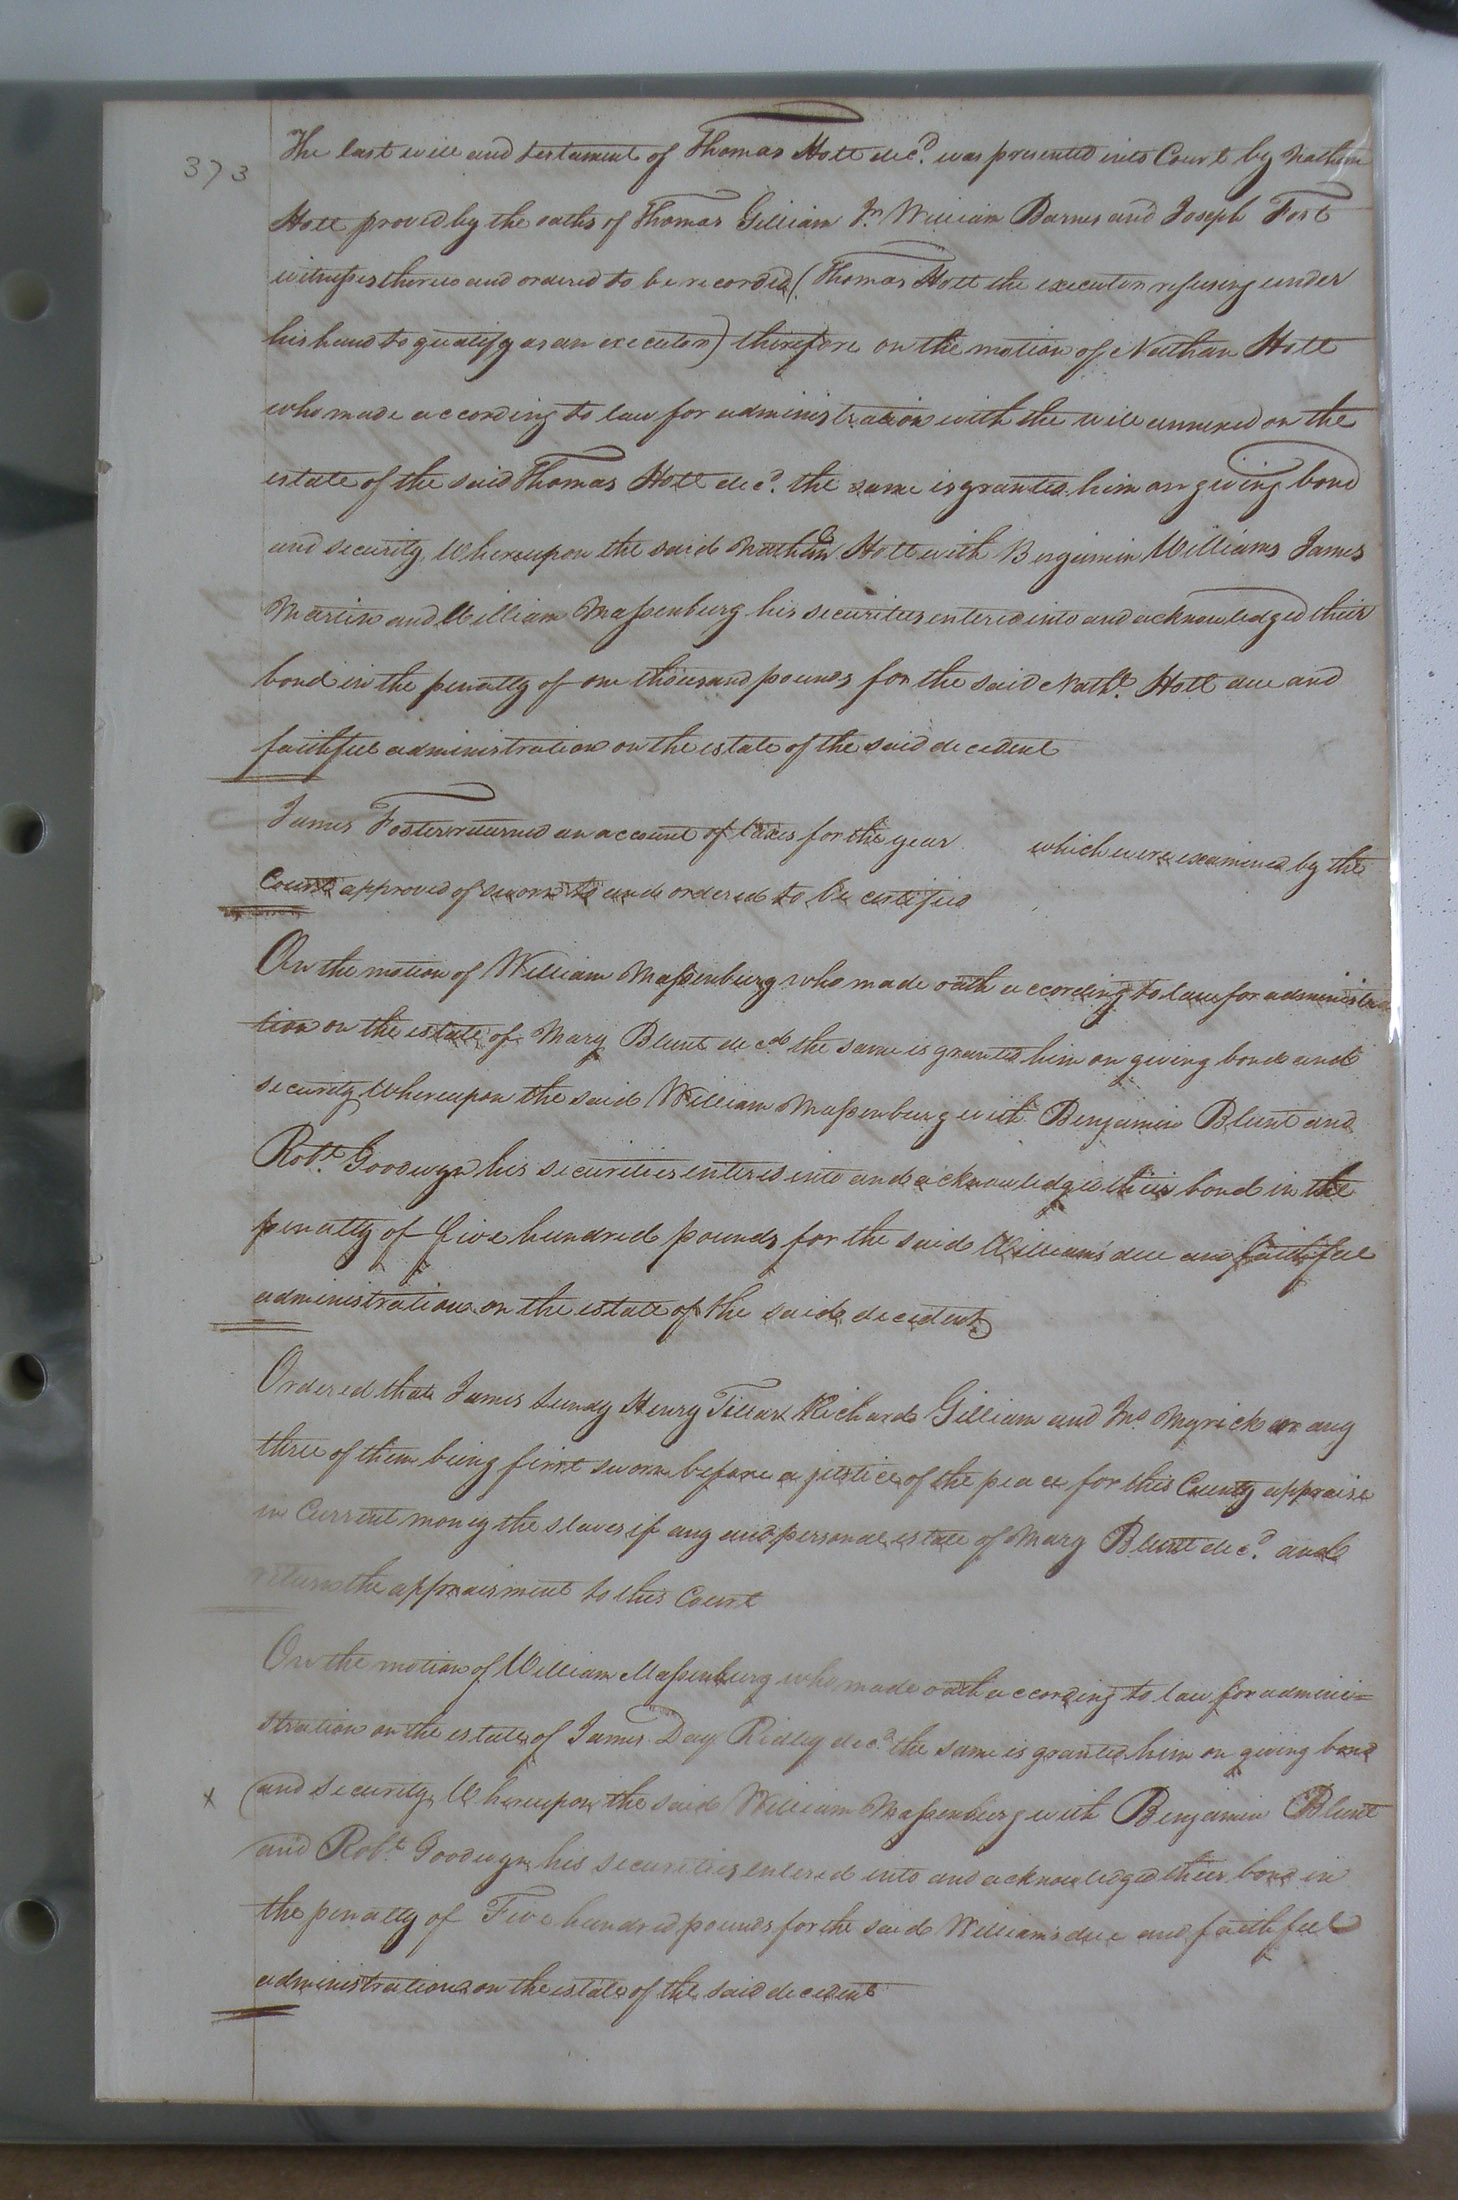 373
The last will and testament of Thomas Holt dec.d was presented into Court by Nathan
Holt proved by the oaths of Thomas Gilliam Jr. William Barnes and Joseph Fort
witnesses thereto and ordered to be recorded (Thomas Holt the executor refusing under
his hand to qualify as an executor) therefore on the motion of Nathan Holt
who made according to law for administration with the will annexed on the
estate of the said Thomas Holt dec.d the same is granted him on giving bond
and security, Whereupon the said Nathan Holt with Benjamin Williams James
Martin and William Massenburg his securities entered into and acknowledged their
bond in the penalty of one thousand pounds for the said Nath.l Holt due and
faithful administration on the estate of the said decedent
James Foster returned an account of taxes for the year which were examined by the
Court approved of sworn to and ordered to be certified
On the motion of William Massenburg who made oath according to law for administra
tion on the estate of Mary Blunt decd the same is granted him on giving bond and
security Whereupon the said William Massenburg with Benjamin Blunt and
Robt. Goodwyn his securities entered into and acknowledged their bond in the
penalty of five hundred pounds for the said William's due and faithful
administration on the estate of the said decedent
Ordered that James Lundy Henry Tillar Richard Gilliam and Jno. Myrick or any
three of them being first sworn before a justice of the peace for this County appraise
in Current money the slaves if any and personal estate of Mary Blunt dec.d and
return the appraisment to this Court
On the motion of William Massenburg who made oath according to law for admini=
stration on the estate of James Day Ridley dec.d the same is granted him on giving bond
x and security, Whereupon the said William Massenburg with Benjamin Blunt
and Robt. Goodwyn his securities entered into and acknowledged their bond in
the penalty of Five hundred pounds for the said William's due and faithful
administration on the estate of the said decedent